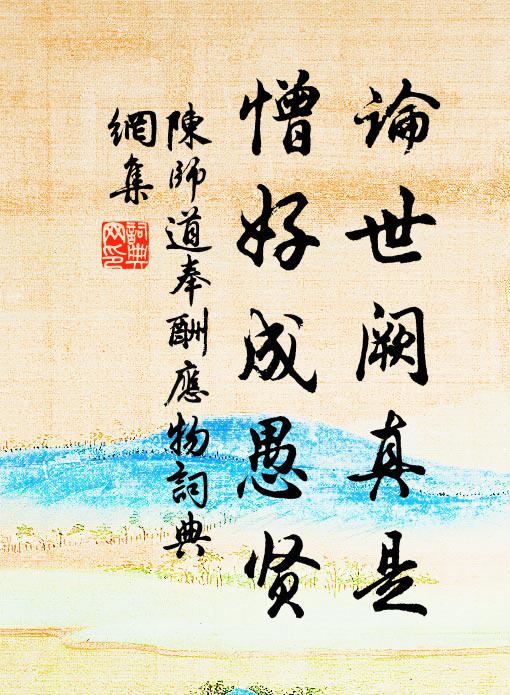 論世闕真是
憎好成愚贤
陳師道奉酬應物詞典
網集
詞典
网印